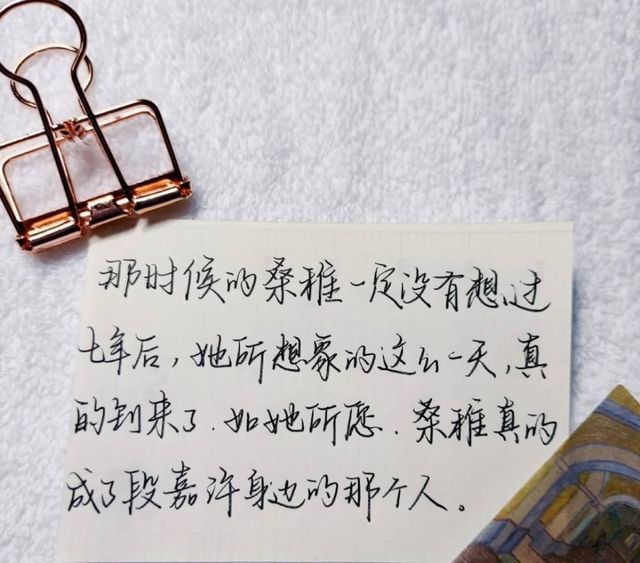 那时候的桑稚一定没有想过
七年后，她所想象的这么一天，真
的到来了．如她所愿．桑稚真的
成了段嘉许身边的那个人。